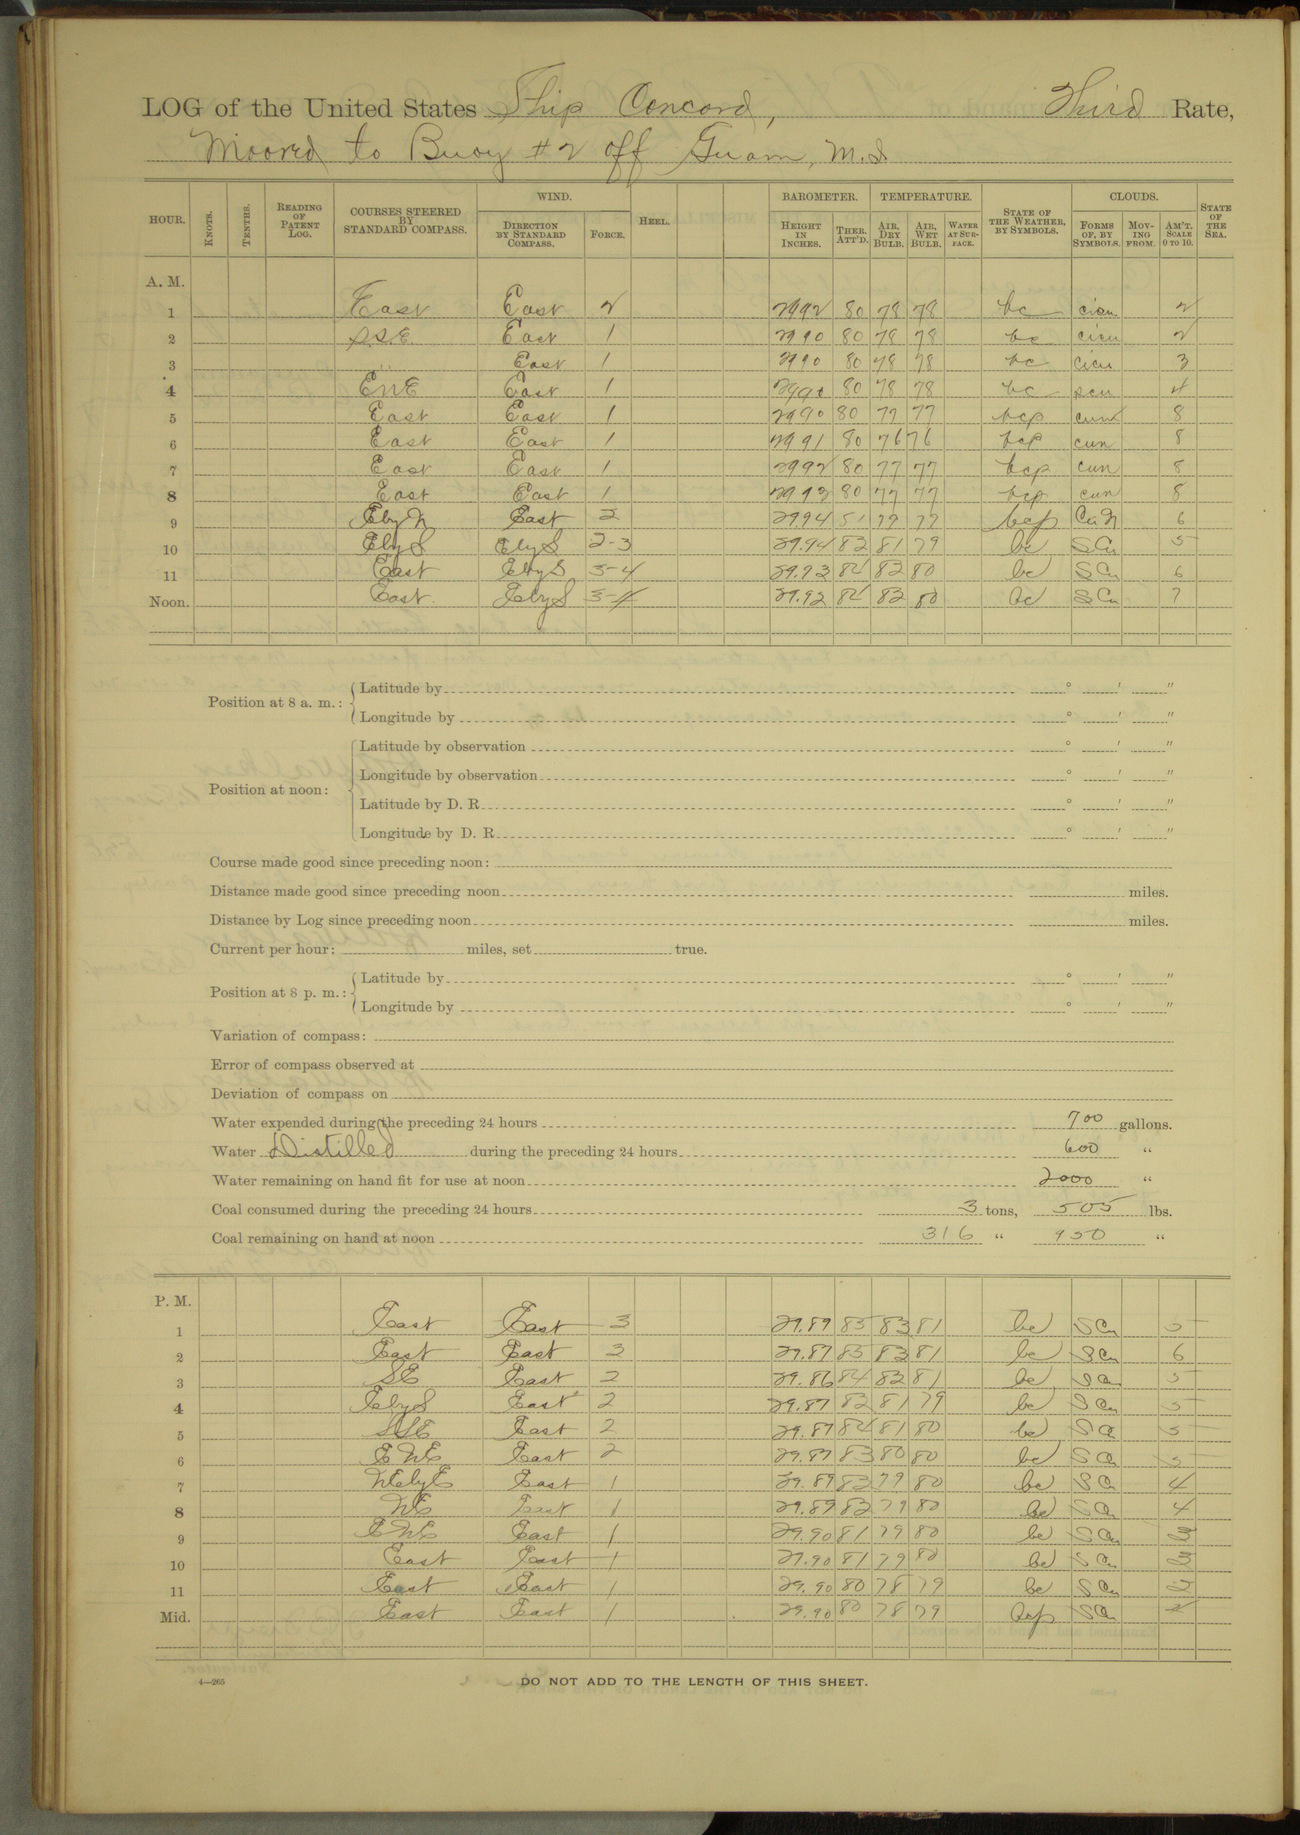 LOG of the United States Ship Concord, Third Rate,
Moored to Buoy #2 off Guam, M.I.
HOUR. KNOTS. TENTHS. READING OF PATENT LOG. COURSES STEERED BY STANDARD COMPASS. WIND. DIRECTION BY STANDARD COMPASS. FORCE. HEEL. BAROMETER. HEIGHT IN INCHES. THER. ATT'D. TEMPERATURE. AIR, DRY BULB. AIR, WET BULB. WATER AT SURFACE. STATE OF THE WEATHER, BY SYMBOLS. CLOUDS. FORMS OF, BY SYMBOLS. MOVING FROM. AM'T. SCALE 0 TO 10. STATE OF THE SEA.
A. M.
1 East East 2 2992 80 78 78 bc cicu 2
2 S.S.E. East 1 2990 80 78 78 bc cicu 2
3 East 1 2990 80 78 78 bc cicu 3
4 ENE East 1 2990 80 78 78 bc scu 4
5 East East 1 2990 80 77 77 bcp cun 8
6 East East 1 2991 80 76 76 bcp cun 8
7 East East 1 2992 80 77 77 bcp cun 8
8 East East 1 2993 80 77 77 bcp cun 8
9 EbyN East 2 2994 81 79 79 bcp CuN 6
10 EbyS EbyS 2-3 29.94 82 81 79 bc SCu 5
11 East EbyS 3-4 29.93 84 82 80 bc SCu 6
Noon. East EbyS 3-4 29.92 84 82 80 bc SCu 7
Position at 8 a. m.: Latitude by ° ' "
Longitude by ° ' "
Position at noon: Latitude by observation ° ' "
Longitude by observation ° ' "
Latitude by D. R. ° ' "
Longitude by D. R. ° ' "
Course made good since preceding noon:
Distance made good since preceding noon miles.
Distance by Log since preceding noon miles.
Current per hour: miles, set true.
Position at 8 p. m.: Latitude by ° ' "
Longitude by ° ' "
Variation of compass:
Error of compass observed at
Deviation of compass on
Water expended during the preceding 24 hours 700 gallons.
Water Distilled during the preceding 24 hours 600 "
Water remaining on hand fit for use at noon 2000 "
Coal consumed during the preceding 24 hours 3 tons, 505 lbs.
Coal remaining on hand at noon 316 " 950 "
P. M.
1 East East 3 29.89 85 83 81 bc SCu 5
2 East East 3 29.87 85 83 81 bc SCu 6
3 SE East 2 29.86 84 82 81 bc SCu 5
4 EbyS East 2 29.87 82 81 79 bc SCu 5
5 SSE East 2 29.87 84 81 80 bc SCu 5
6 ENE East 2 29.87 83 80 80 bc SCu 5
7 NEbyE East 1 29.89 82 79 80 bc SCu 4
8 NE East 1 29.89 82 79 80 bc SCu 4
9 ENE East 1 29.90 81 79 80 bc SCu 3
10 East East 1 29.90 81 79 80 bc SCu 3
11 East East 1 29.90 80 78 79 bc SCu
Mid. East East 1 29.90 80 78 79 bcp SCu
4—265
DO NOT ADD TO THE LENGTH OF THIS SHEET.